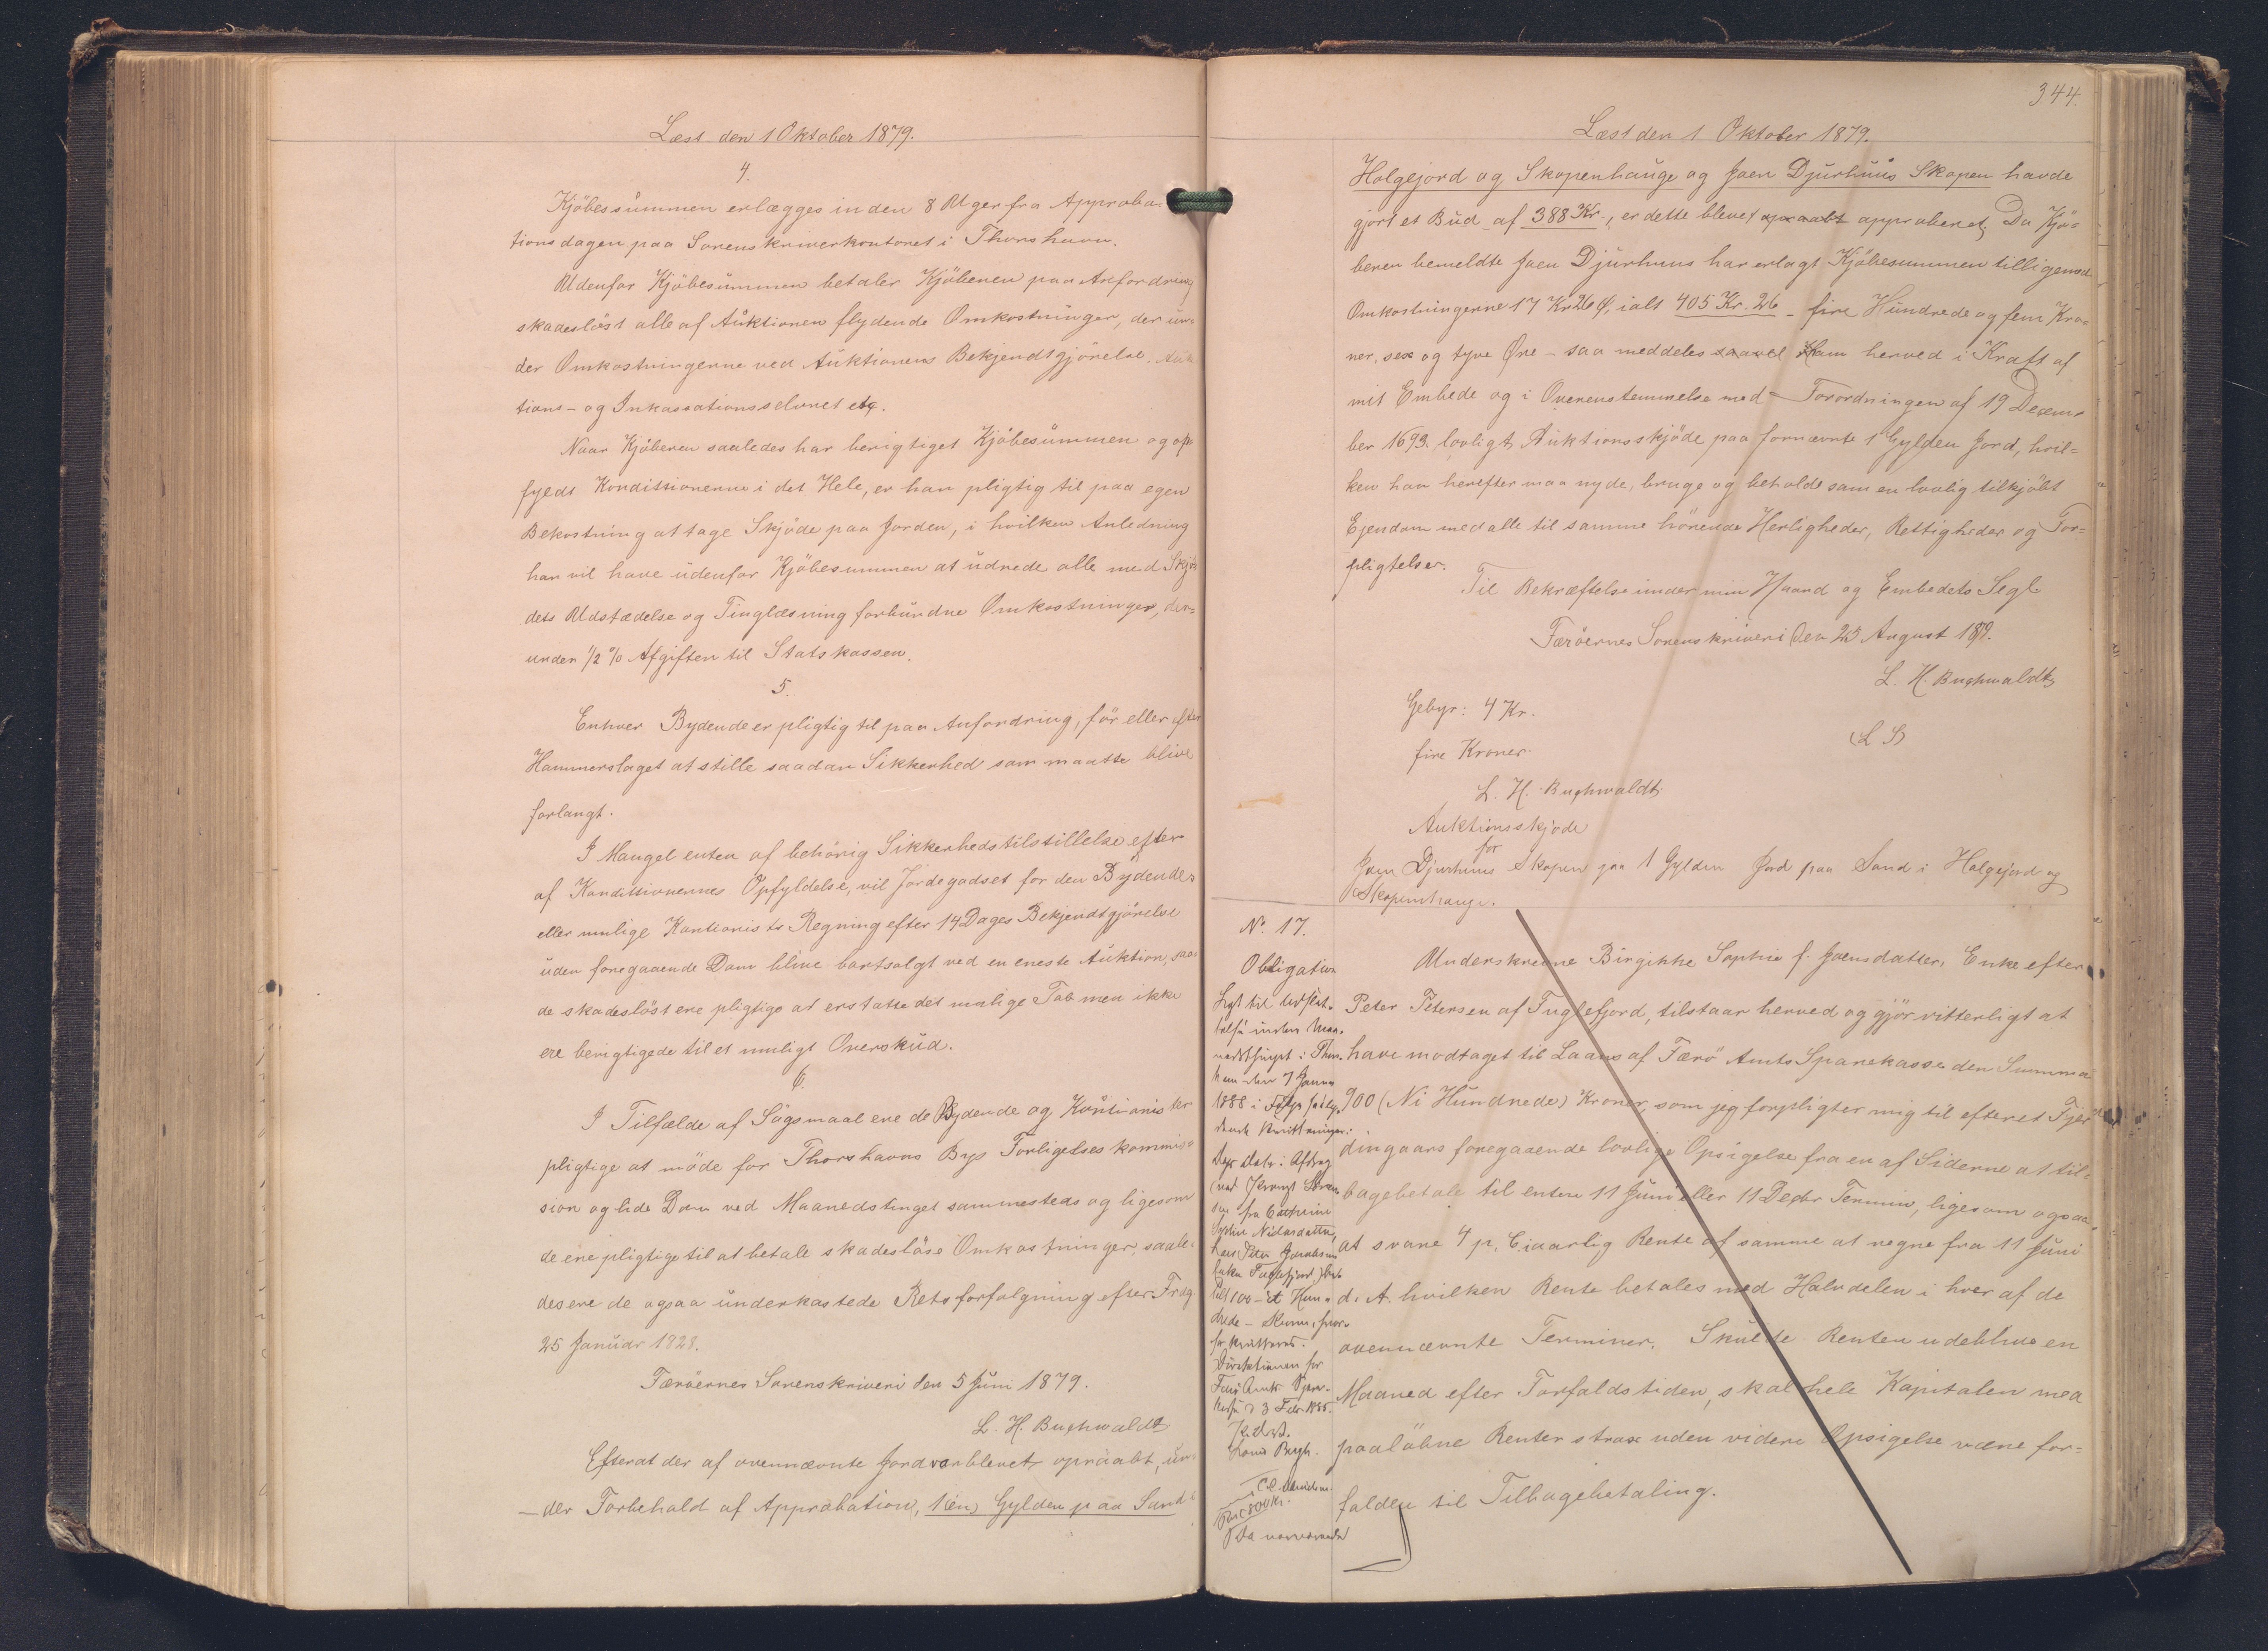 Læst den 1 Oktober 1879.
4.
Kjöbesummen erlægges inden 8 Uger fra Approba-
tionsdagen paa Sorenskriverkontoret i Thorshavn.
Udenfor Kjöbesummen betaler Kjöberen paa Anfordring
skadeslöst alle af Auktionen flydende Omkostninger, der un-
der Omkostningerne ved Auktionens Bekjendtgjörelse, Auk
tions- og Inkassationssalæret etc.
Naar Kjöberen saaledes har berigtiget Kjöbesummen og op-
fyldt Konditionerne i det Hele, er han pligtig til paa egen
Bekostning at tage Skjöde paa Jorden, i hvilken Anledning
han vil have udenfor Kjöbesummen at udrede alle med Skjö
dets Udstædelse og Tinglæsning forbundne Omkostninger, der-
under 1/2 % Afgiften til Statskassen.
5.
Enhver Bydende er pligtig til paa Anfordring, för eller efter
Hammerslaget at stille saadan Sikkerhed som maatte blive
forlangt.
I Mangel enten af behörig Sikkerhedstilstillelse eller
af Konditionernes Opfyldelse, vil Jordegodset for den Bydendes
eller mulige Kautionists Regning efter 14 Dages Bekjendtgjörelse
uden foregaaende Dom blive bortsolgt ved en eneste Auktion, saa
de skadeslöst ere pligtige at erstatte det mulige Tab men ikke
ere berigtigede til et muligt Overskud.
6.
I Tilfælde af Sögsmaal ere de Bydende og Kautionister
pligtige at möde for Thorshavns Bys Forligelseskommis-
sion og lide Dom ved Maanedstinget sammesteds og ligesom
de ere pligtige til at betale skadeslöse Omkostninger, saale-
des ere de ogsaa underkastede Retsforfölgning efter Frdg
25 Januar 1828.
Færöernes Sorenskriveri den 5 Juni 1879.
L. H. Buchwaldt
Efterat der af ovennævnte Jord var blevet opraabt, un-
der Forbehold af Approbation, 1 (en) Gylden paa Sand i
344.
Læst den 1 Oktober 1879.
Holgejord og Skopenhauge og Joen Djurhuus Skopen havde
gjort et Bud af 388 Kr., er dette blevet opraabt approberet; Da Kjö-
beren bemeldte Joen Djurhuus har erlagt Kjöbesummen tilligemed
Omkostningerne 17 Kr 26 Ø, ialt 405 Kr. 26 - fire Hundrede og fem Kro-
ner, sex og tyve Øre - saa meddeles saavel Ham herved i Kraft af
mit Embede og i Overenstemmelse med Forordningen af 19 Decem-
ber 1693 lovligt Auktionsskjöde paa fornævnte 1 Gylden Jord, hvil-
ken han herefter maa nyde, bruge og beholde som en lovlig tilkjöbt
Ejendom med alle til samme hörende Herligheder, Rettigheder og For-
pligtelser.
Til Bekræftelse under min Haand og Embedets Segl
Færöernes Sorenskriveri den 25 August 1879.
L. H. Buchwaldt
Gebyr: 4 Kr.
(L S)
fire Kroner.
L. H. Buchwaldt
Auktionsskjöde
for
Joen Djurhuus Skopen paa 1 Gylden Jord paa Sand i Holgejord og
Skopenhauge.
No. 17.
Obligation
Lyst til Udslet-
telse inden Maa-
nedsthinget i Thors-
havn den 7 Januar
1888 i Følge følg-
ende Kvitteringer:
Dags Dato i Afdrag
Sophie Nielsdatter,
Enke Fuglefjord) be-
talt 100 - et Hun-
drede - Kroner, hvor-
for kvitteres.
Direktionen for
Færö Amts Spare-
kasse d 3 Febr 1885.
Louis Bergh.
Underskrevne Birgithe Sophie f. Joensdatter, Enke efter
Peter Petersen af Fuglefjord, tilstaar herved og gjör vitterligt at
have modtaget til Laans af Færö Amts Sparekasse den Summa
900 (Ni Hundrede) Kroner, som jeg forpligter mig til efter et Fjer-
dingaars foregaaende lovlige Opsigelse fra en af Siderne at til-
bagebetale til enten 11 Juni eller 11 Decbr Termin, ligesom ogsaa
at svare 4 p. C. aarlig Rente af samme at regne fra 11 Juni
d. A. hvilken Rente betales med Halvdelen i hver af de
ovennævnte Terminer. Skulde Renten udeblive en
Maaned efter Forfaldstiden, skal hele Kapitalen med
paalöbne Renter strax uden videre Opsigelse være for-
falden til Tilbagebetaling.